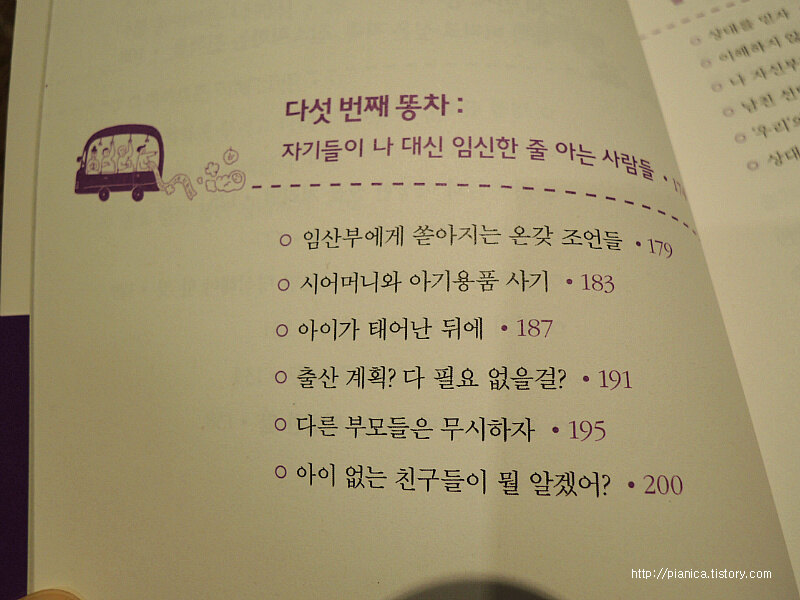 다섯 번째 똥차 :
자기들이 나 대신 임신한 줄 아는 사람들 •
임산부에게 쏟아지는 온갖 조언들 • 179
시어머니와 아기용품 사기 • 183
아이가 태어난 뒤에 • 187
출산 계획? 다 필요 없을걸? • 191
다른 부모들은 무시하자 • 195
아이 없는 친구들이 뭘 알겠어? • 200
상대를 믿자
이해하지 않
나 자신부
남친 선
'우리'의
상대
http://pianica.tistory.com